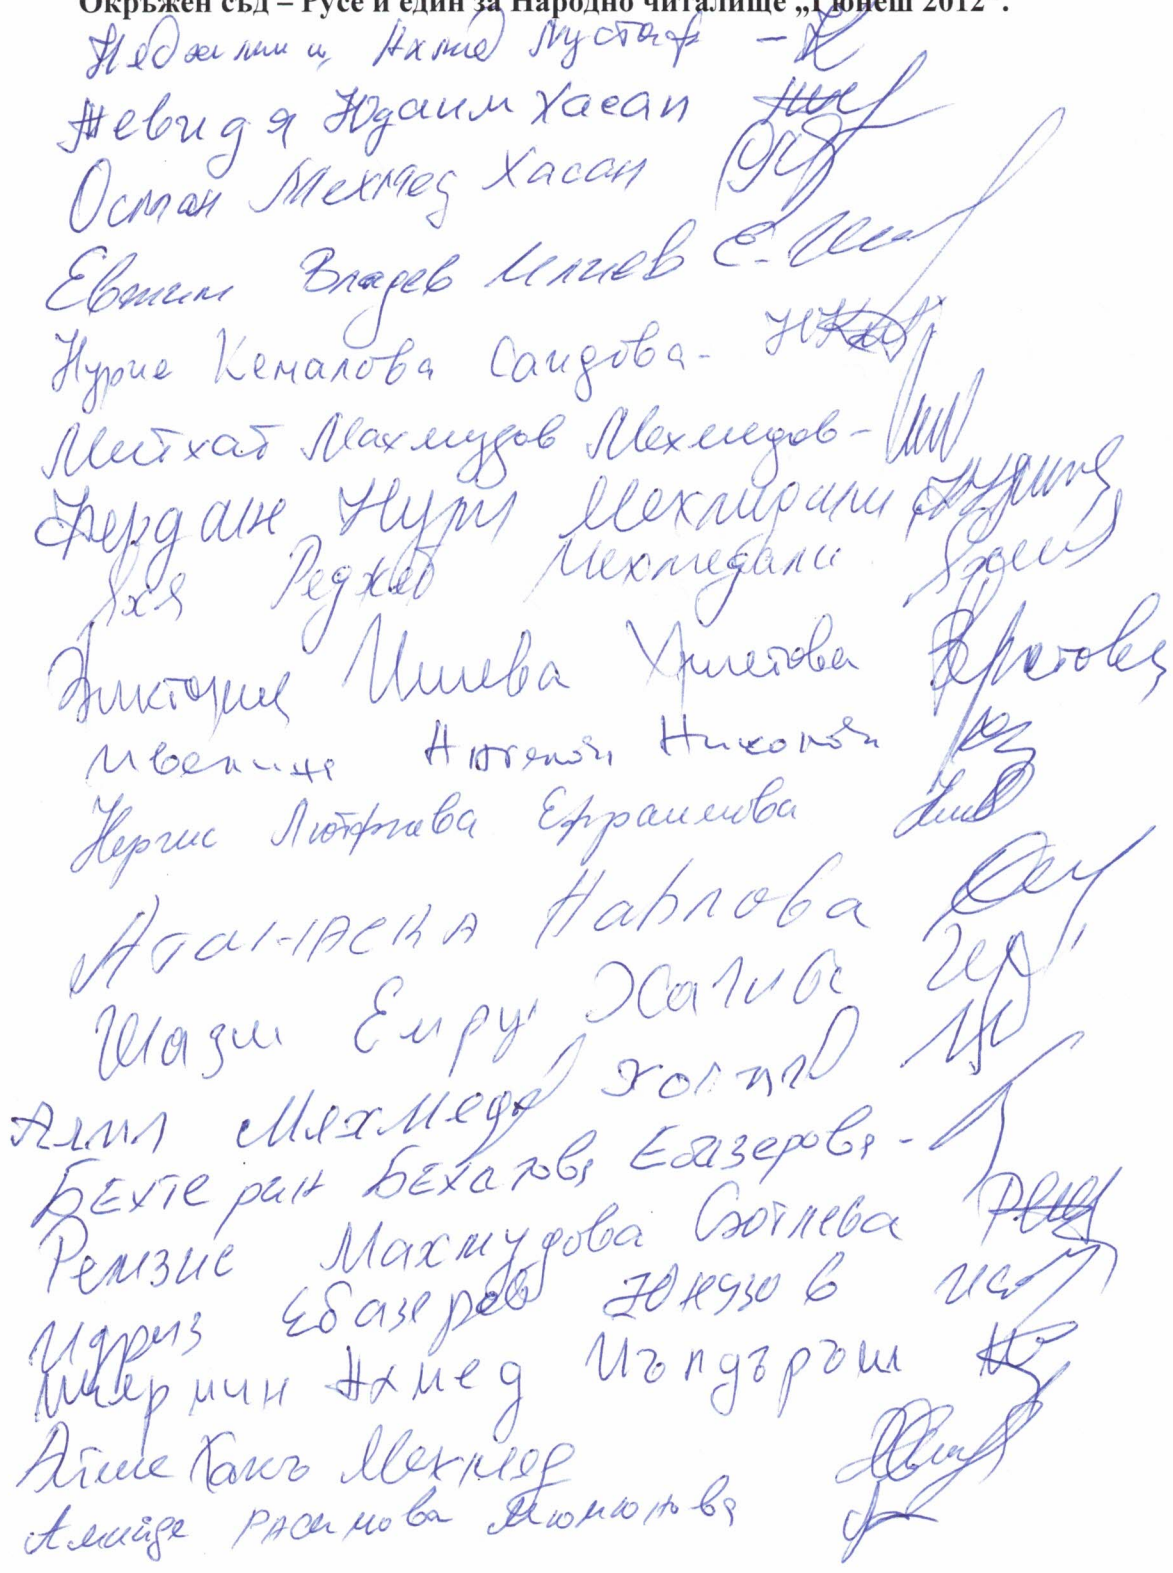 Окръжен съд – Русе и един за Народно читалище „Гюнеш 2012“.
Ахмед Мустаф –
Невидя Юдаим Хасан
Осман Мехмед Хасан
Евтим Владев Илиев Е. Или
Нурие Кемалова Саидова -
Митхат Махмудов Мехмедов -
Фердане Нури Мехмедали
Яхя Реджеб Мехмедали
Виктория Илиева Христова
Ивелина Ангелова Николова
Нергис Лютфиева Ефраимова
Атанаска Павлова
Шазие Емруш
Алил Мехмедов
Бехтерин Бехатова Ебазерова -
Ремзие Махмудова
Идриз Ебазеров Юнузов
Ахмед Йълдъръм
Айше Хакъ Мехмед
Расимова Мюмюнова